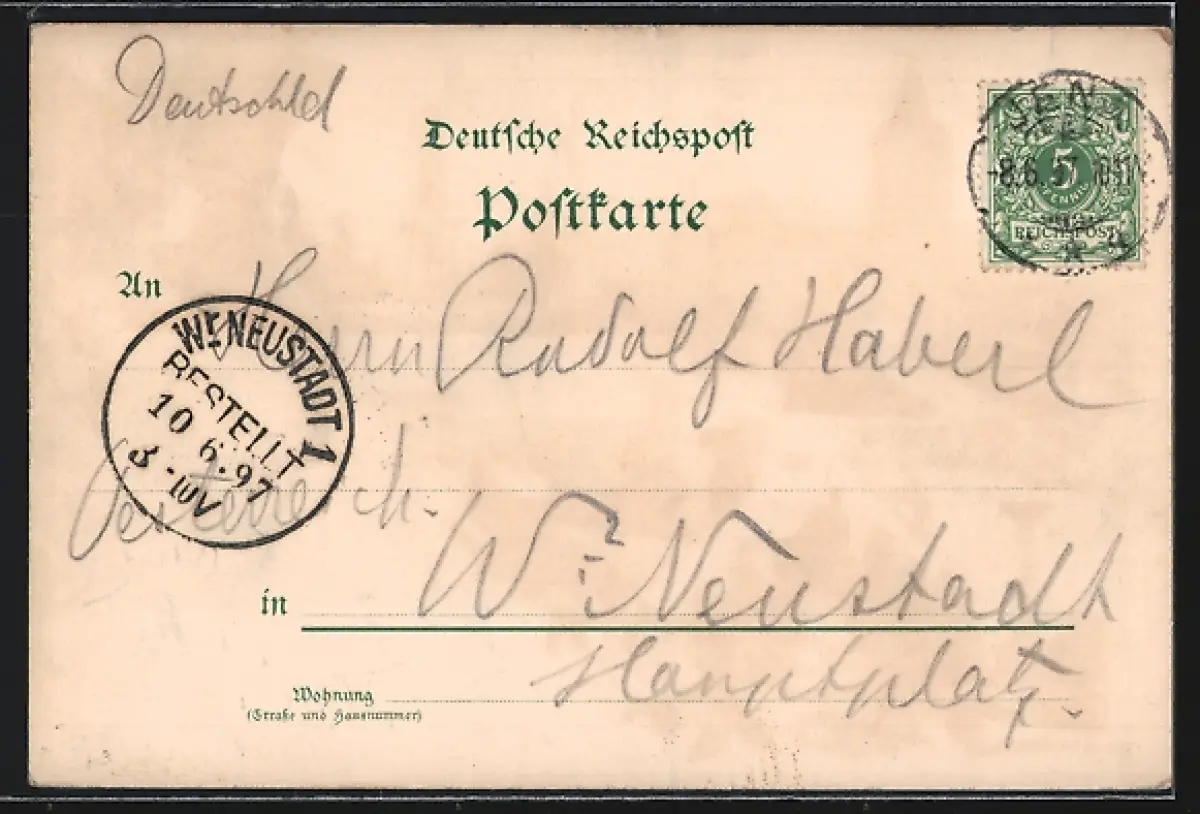 Deutschld
Deutsche Reichspost
Postkarte
JENA
-8.6.97.
5
PFENNIG
REICHSPOST
An Herrn Rudolf Haberl
Wr. NEUSTADT 1
BESTELLT
10 6.97
Oesterreich.
in Wr. Neustadt
Hauptplatz.
Wohnung
(Straße und Hausnummer)